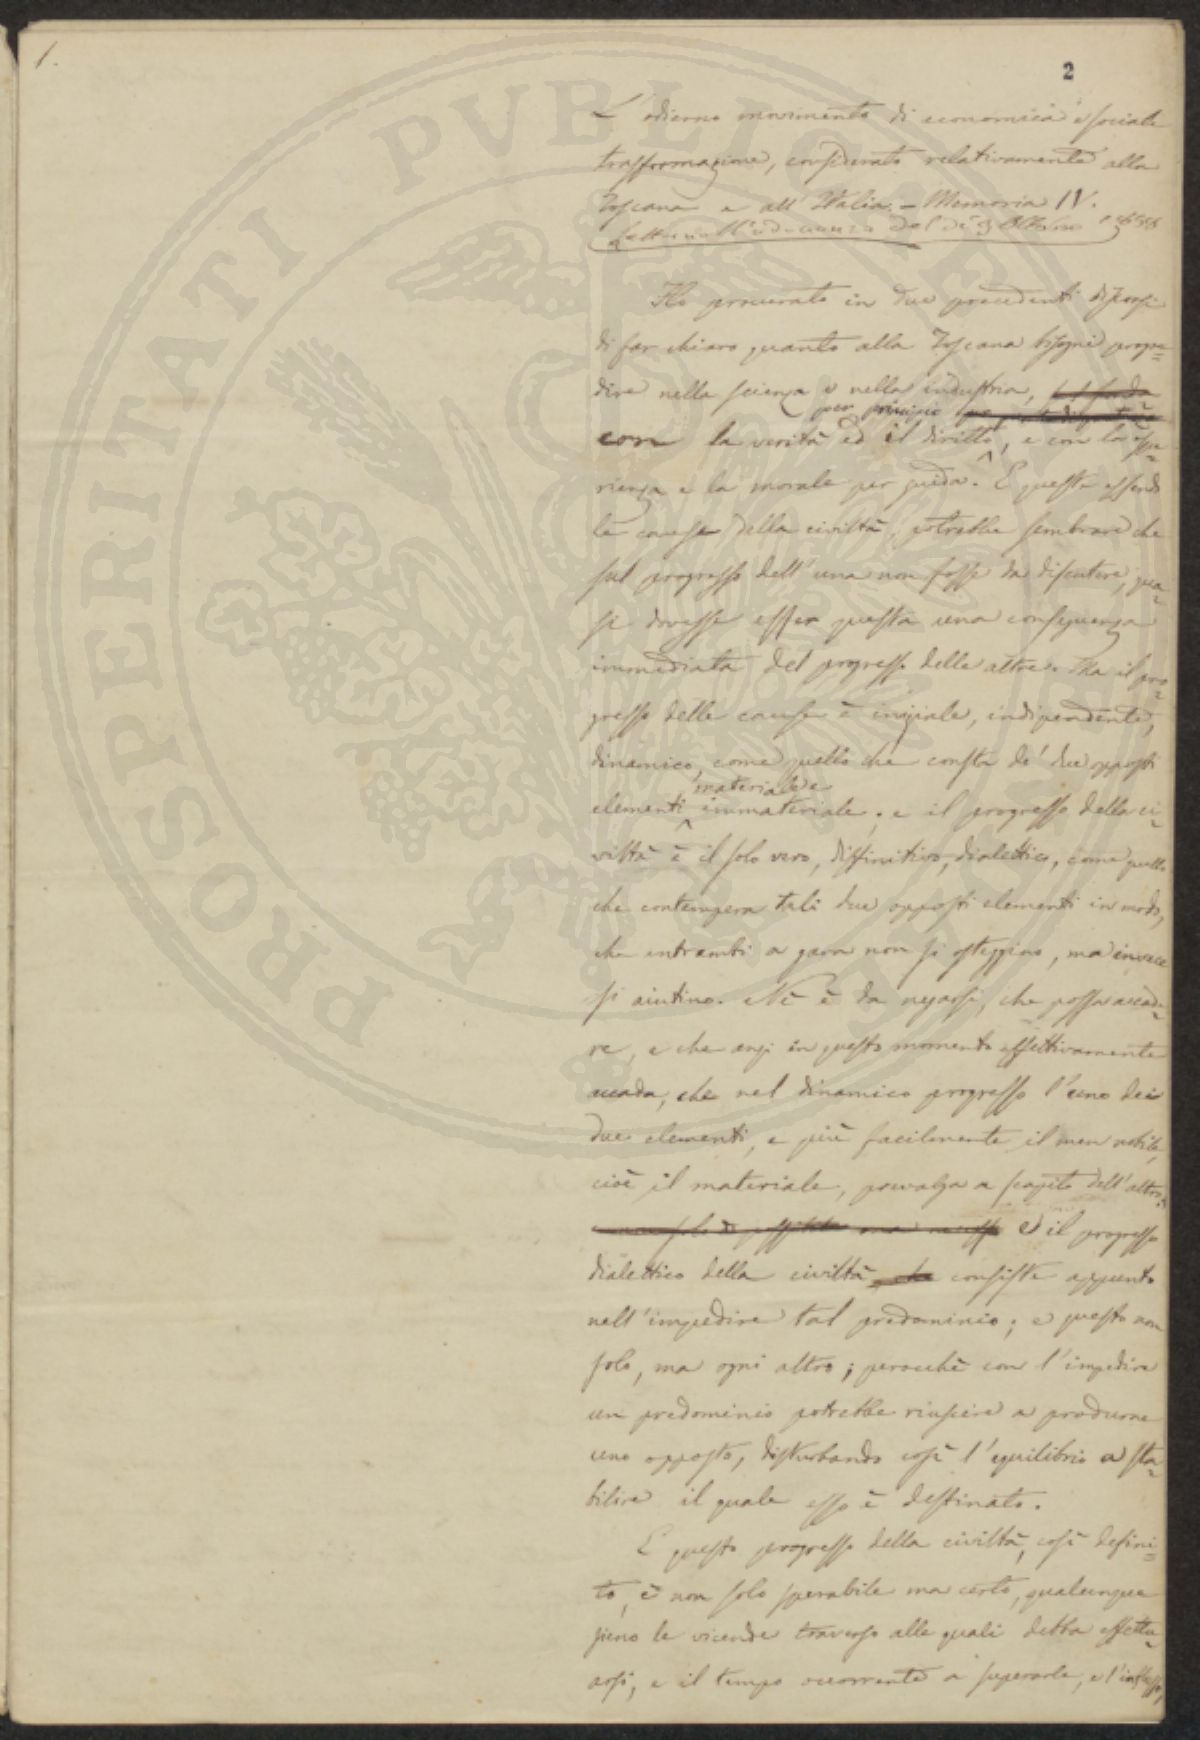 1.
2
PROSPERITATI PVBLICAE
L'odierno movimento di economica e sociale
trasformazione, considerato relativamente alla
Toscana e all'Italia. – Memoria IV.
Letta nell'adunanza del dì 3 Ottobre 1858
Ho procurato in due precedenti discorsi
di far chiaro quanto alla Toscana bisogni progre=
dire nella scienza e nella industria,
per principio
con la verità ed il diritto, e con la espe=
rienza e la morale per guida. E queste essendo
le cause della civiltà, potrebbe sembrare che
sul progresso dell'una non fosse da discutere, qua=
si dovesse esser questa una conseguenza
immediata del progresso delle altre. Ma il pro=
gresso delle cause è iniziale, indipendente,
dinamico, come quello che consta de' due opposti
materiale e
elementi immateriale; e il progresso della ci=
viltà è il solo vero, diffinitivo, dialettico, come quello
che contempera tali due opposti elementi in modo,
che entrambi a gara non si osteggino, ma invece
si aiutino. Nè è da negarsi, che possa accade=
re, e che anzi in questo momento effettivamente
accada, che nel dinamico progresso l'uno dei
due elementi, e più facilmente il men nobile,
cioè il materiale, prevalga a scapito dell'altro:
ed il progresso
dialettico della civiltà che consiste appunto
nell'impedire tal predominio; e questo non
solo, ma ogni altro; perocchè con l'impedire
un predominio potrebbe riuscire a produrne
uno opposto, disturbando così l'equilibrio a sta=
bilire il quale esso è destinato.
E questo progresso della civiltà, così defini=
to, è non solo sperabile ma certo, qualunque
sieno le vicende traverso alle quali debba effettu=
arsi, e il tempo occorrente a superarle, e l'